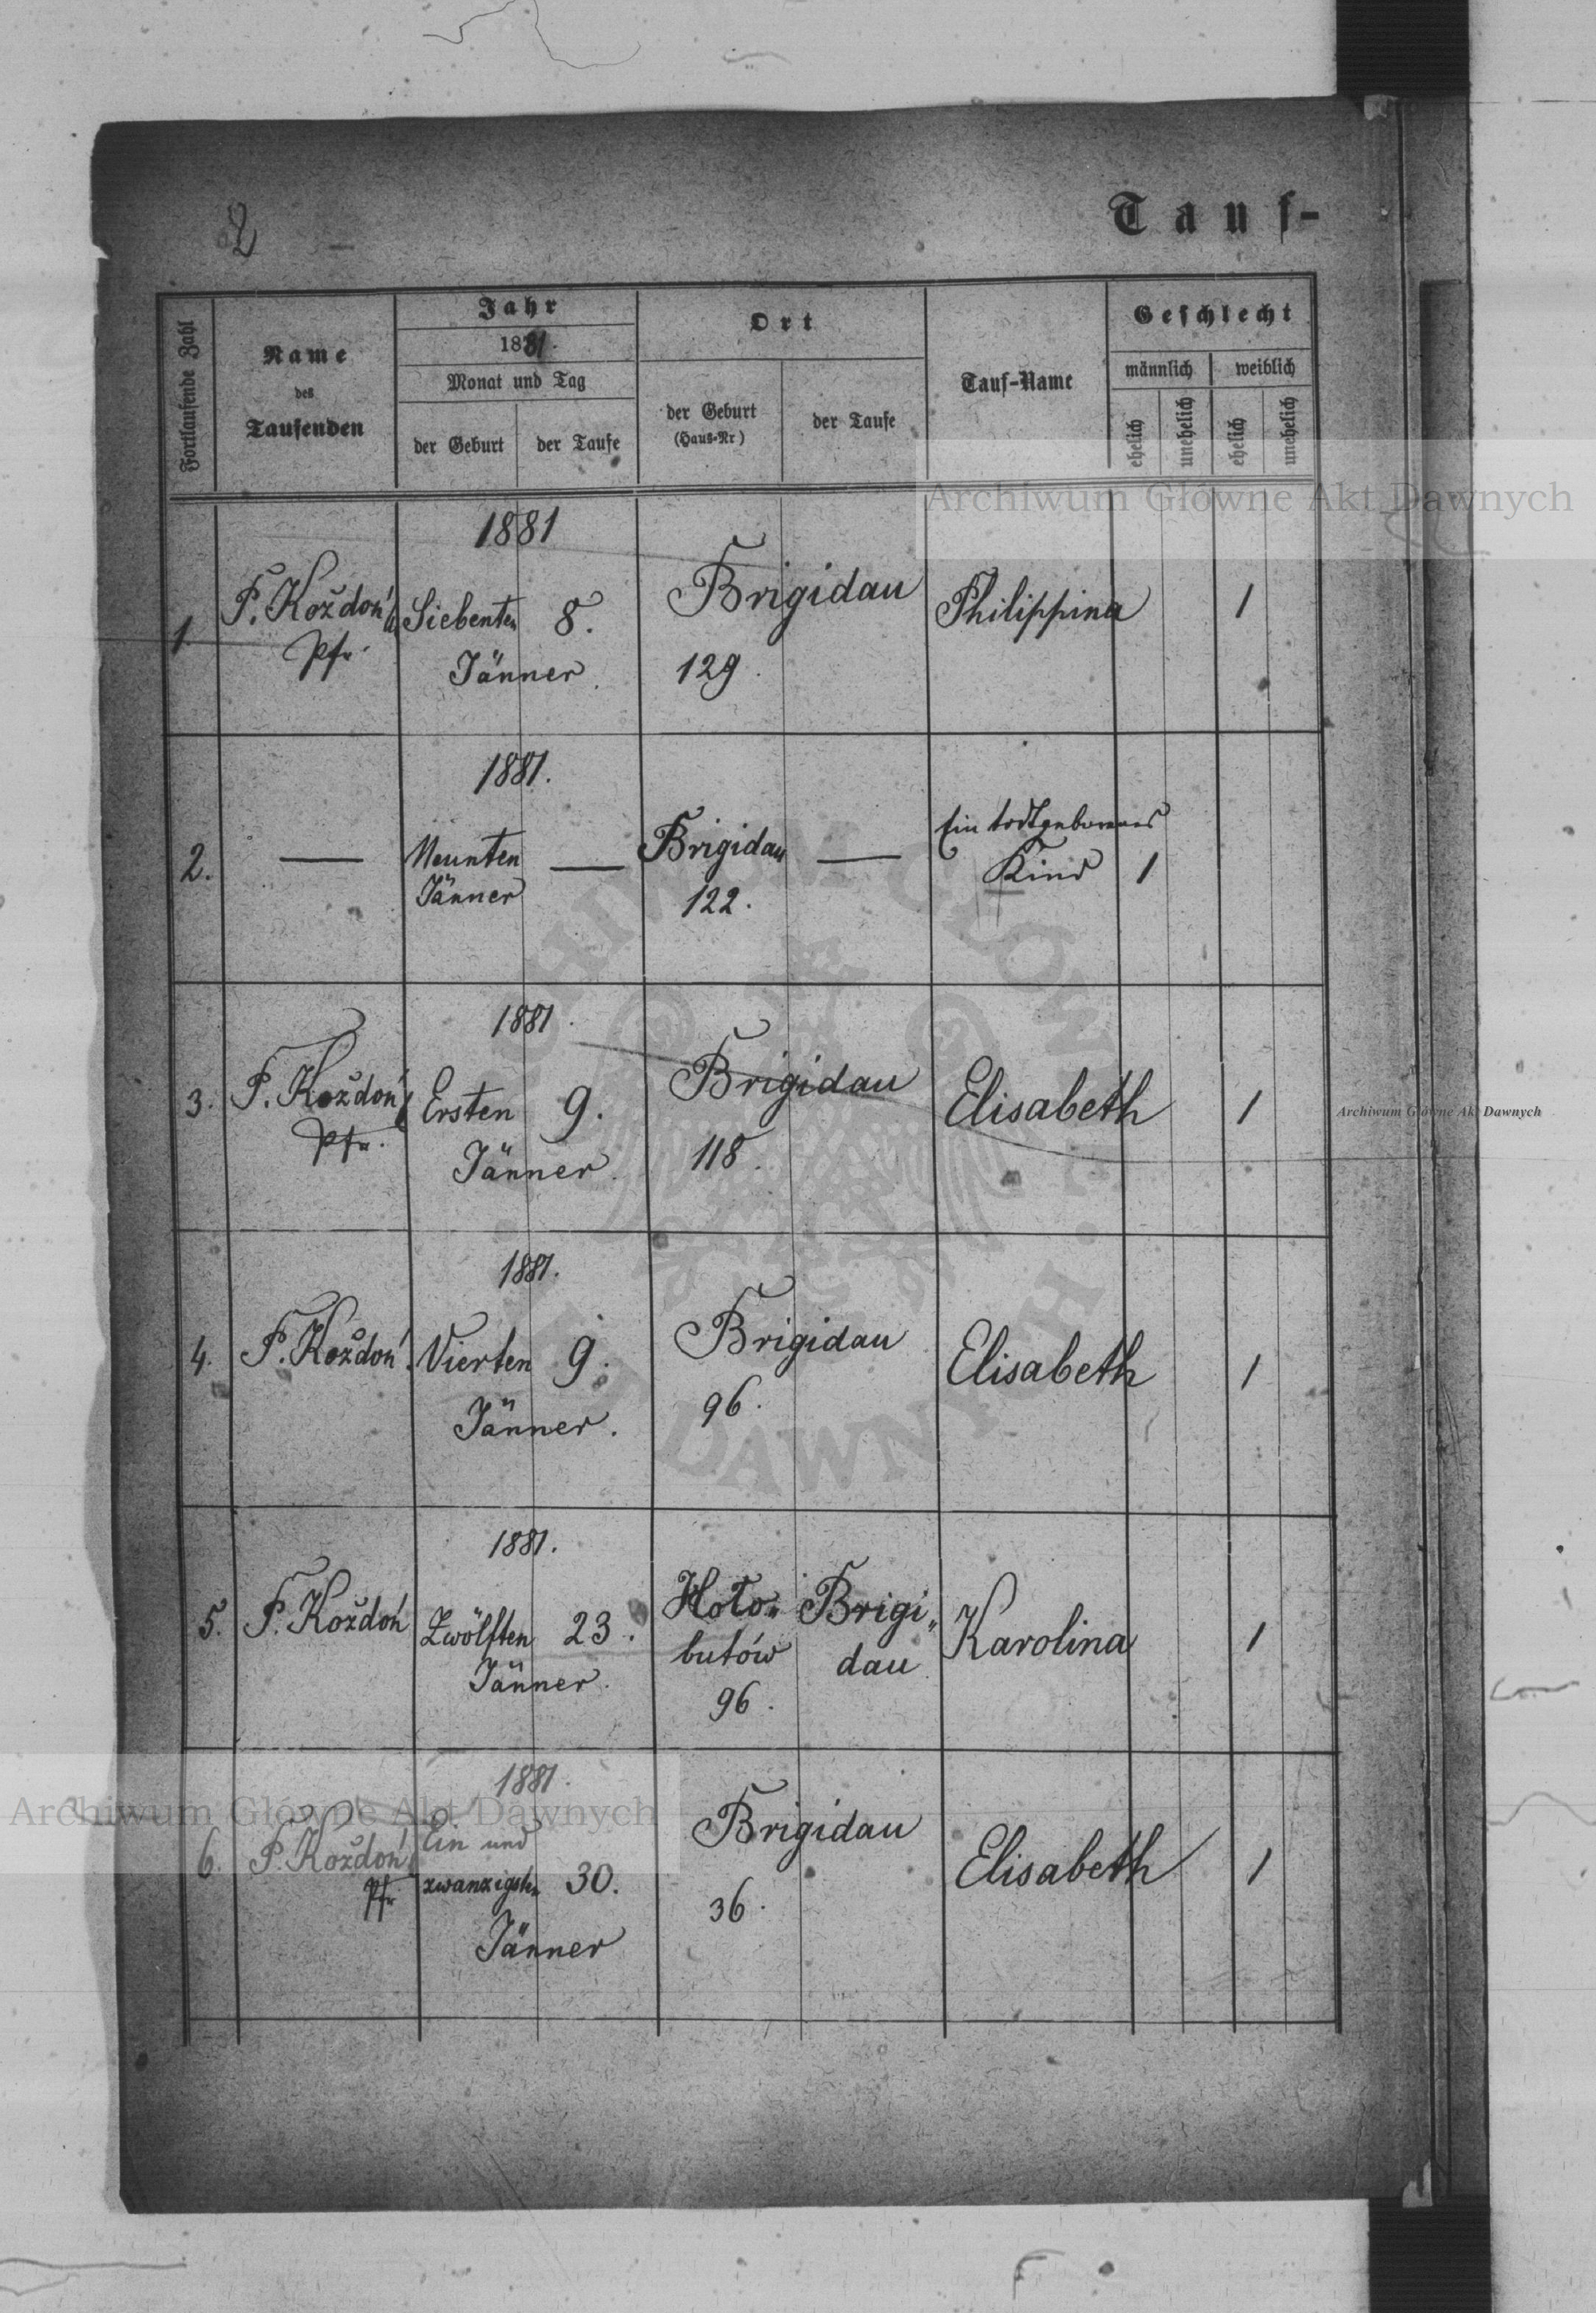 2
Tauf-
Fortlaufende Zahl
Name
des
Taufenden
Jahr
1881.
Monat und Tag
der Geburt
der Taufe
Ort
der Geburt
(Haus-Nr)
der Taufe
Tauf-Name
Geschlecht
männlich
weiblich
ehelich
unehelich
ehelich
unehelich
1881
1. P. Koždoń Siebenten 8. Brigidau Philippina 1
Pfr. Jänner. 129.
1881.
2. — Neunten — Brigidau — Ein todtgebornes
Jänner 122. Kind 1
1881.
3. P. Koždoń Ersten 9. Brigidau Elisabeth 1
Pfr. Jänner. 118.
1881.
4. P. Koždoń Vierten 9. Brigidau Elisabeth 1
Jänner. 96.
1881.
5. P. Koždoń Zwölften 23. Hoło„ Brigi„ Karolina 1
Jänner. butów dau
96.
1881.
6. P. Koždoń Ein und Brigidau Elisabeth 1
Pfr. zwanzigsten 30. 36.
Jänner
Archiwum Główne Akt Dawnych
Archiwum Główne Akt Dawnych
Archiwum Główne Akt Dawnych